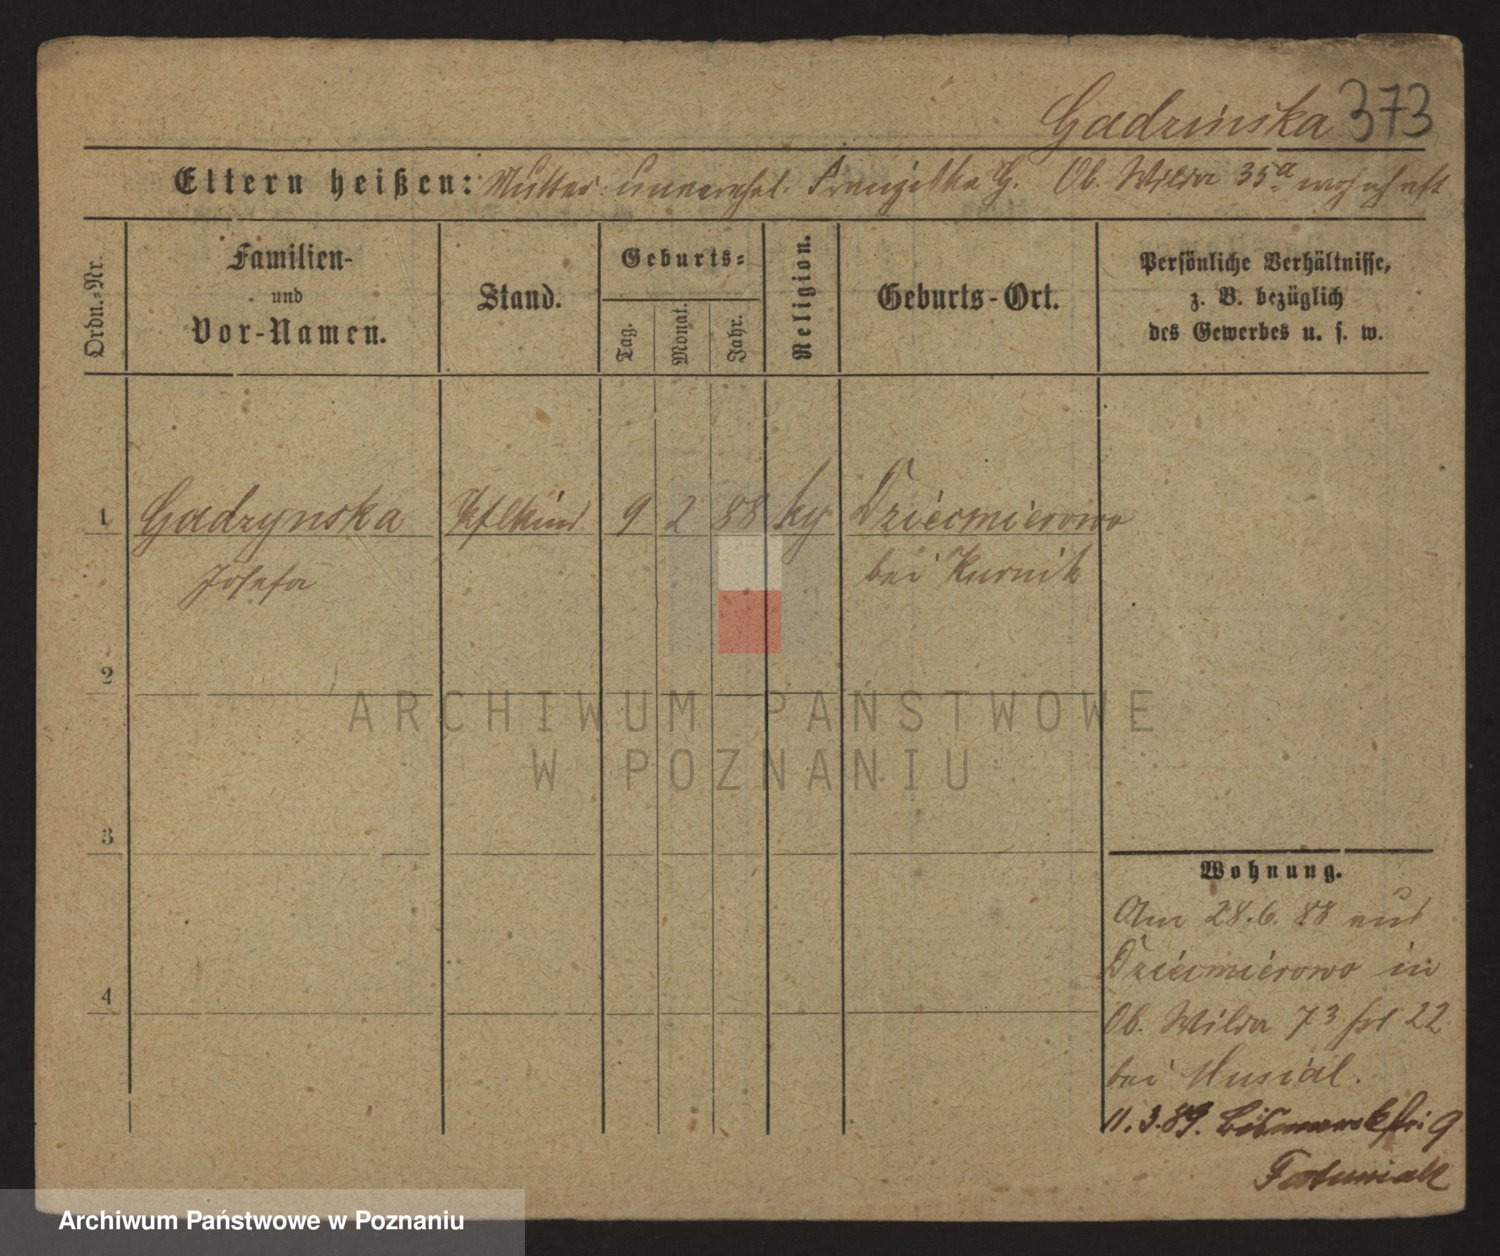 Gadzinska 373
Eltern heißen: Mutter: unverehel. Franziska G. Ob. Wilda 35a wohnhaft
Ordn.=Nr.
Familien-
und
Vor-Namen.
Stand.
Geburts=
Tag.
Monat.
Jahr.
Religion.
Geburts-Ort.
Persönliche Verhältnisse,
z. B. bezüglich
des Gewerbes u. s. w.
1 Gadzynska Pflkind 9 2 88 ky Dziecmierowo
Josefa bei Kurnik
2
3
4
Wohnung.
Am 28.6.88 aus
Dziecmierowo in
Ob. Wilda 73 22
bei Musial.
11.3.89. 9
ARCHIWUM PAŃSTWOWE
W POZNANIU
Archiwum Państwowe w Poznaniu